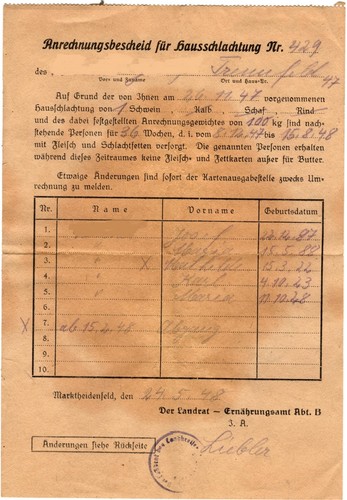 Anrechnungsbescheid für Hausschlachtung Nr. 429
des Trennfeld 47
Vor- und Zuname Ort und Haus-Nr.
Auf Grund der von Ihnen am 26.11.47 vorgenommenen
Hausschlachtung von 1 Schwein Kalb Schaf Rind
und des dabei festgestellten Anrechnungsgewichtes von 100 kg sind nach-
stehende Personen für 36 Wochen, d. i. vom 8.12.47 bis 15.8.48
mit Fleisch und Schlachtfetten versorgt. Die genannten Personen erhalten
während dieses Zeitraumes keine Fleisch- und Fettkarten außer für Butter.
Etwaige Änderungen sind sofort der Kartenausgabestelle zwecks Um-
rechnung zu melden.
Nr. Name Vorname Geburtsdatum
1. Josef 22.12.87
2. " 15.5.88
3. " x Mathilde 15.3.22
4. " Karl 4.10.23
5. " Maria 11.10.28
6.
x 7. ab 15.2.48 Abzug
8.
9.
10.
Marktheidenfeld, den 24.5.48
Der Landrat – Ernährungsamt Abt. B
J. A.
Änderungen siehe Rückseite